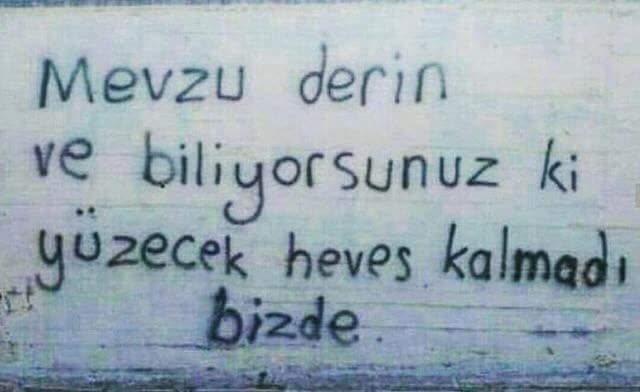 Mevzu derin
ve biliyorsunuz ki
yüzecek heves kalmadı
bizde.